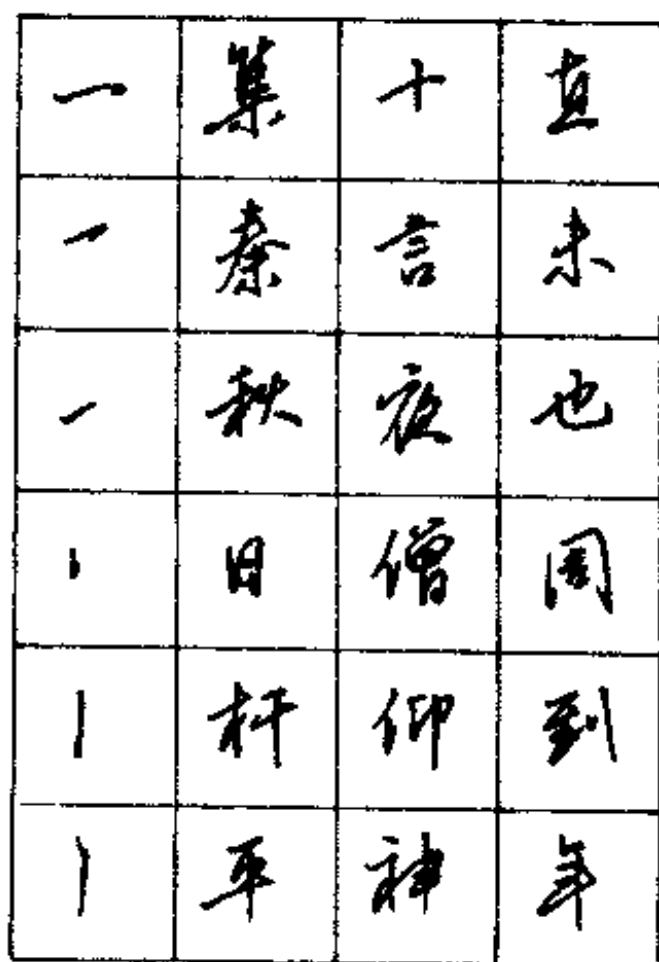 一 集 十 直
一 秦 言 未
一 秋 夜 也
丨 日 僧 周
丨 杆 仰 到
丨 平 神 年